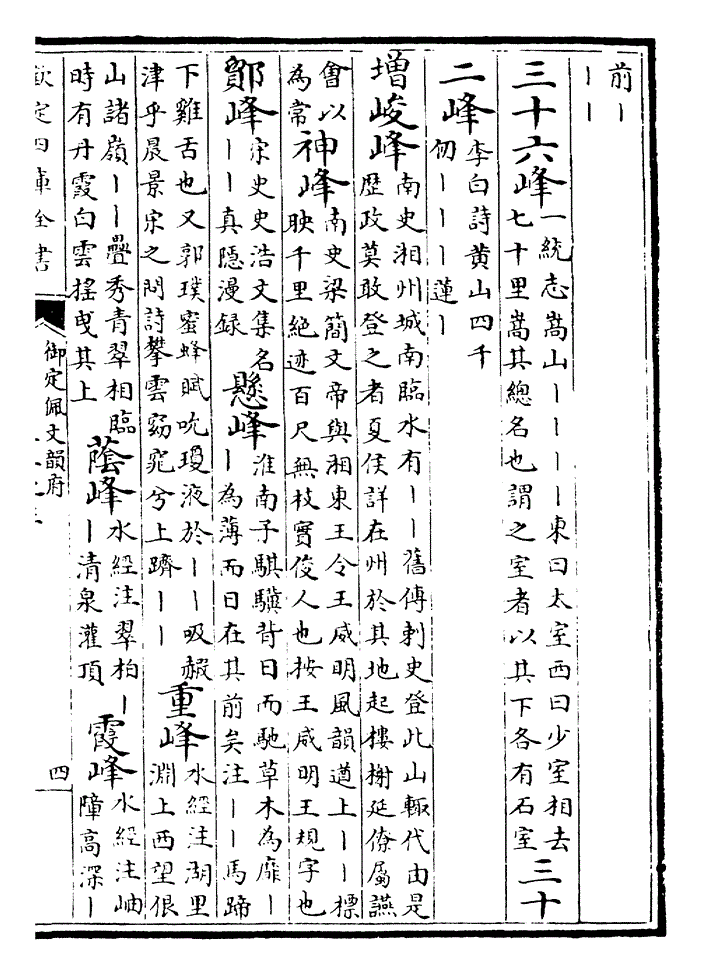 前｜
｜｜
三十六峰一統志嵩山｜｜｜｜東曰太室西曰少室相去
七十里嵩其總名也謂之室者以其下各有石室三十
二峰李白詩黄山四千
仞｜｜｜蓮｜
増峻峰南史湘州城南臨水有｜｜舊傳刺史登此山輒代由是
歴政莫敢登之者夏侯詳在州於其地起樓榭延僚屬讌
會以
為常神峰南史梁簡文帝與湘東王令王威明風韻遒上｜｜標
映千里絶迹百尺無枝實俊人也按王威明王規字也
鄮峰宋史史浩文集名
｜｜真隱漫録懸峰淮南子騏驥背日而馳草木為靡｜
｜為薄而日在其前矣注｜｜馬蹄
下雞舌也又郭璞蜜蜂賦吮瓊液於｜｜吸赮
津乎晨景宋之問詩攀雲窈窕兮上躋｜｜重峰水經注湖里
淵上西望㑊
山諸嶺｜｜疊秀青翠相臨
時有丹霞白雲摇曵其上蔭峰水經注翠柏｜
｜清泉灌頂霞峰水經注岫
障高深｜
欽定四庫全書
御定佩文韻府
四